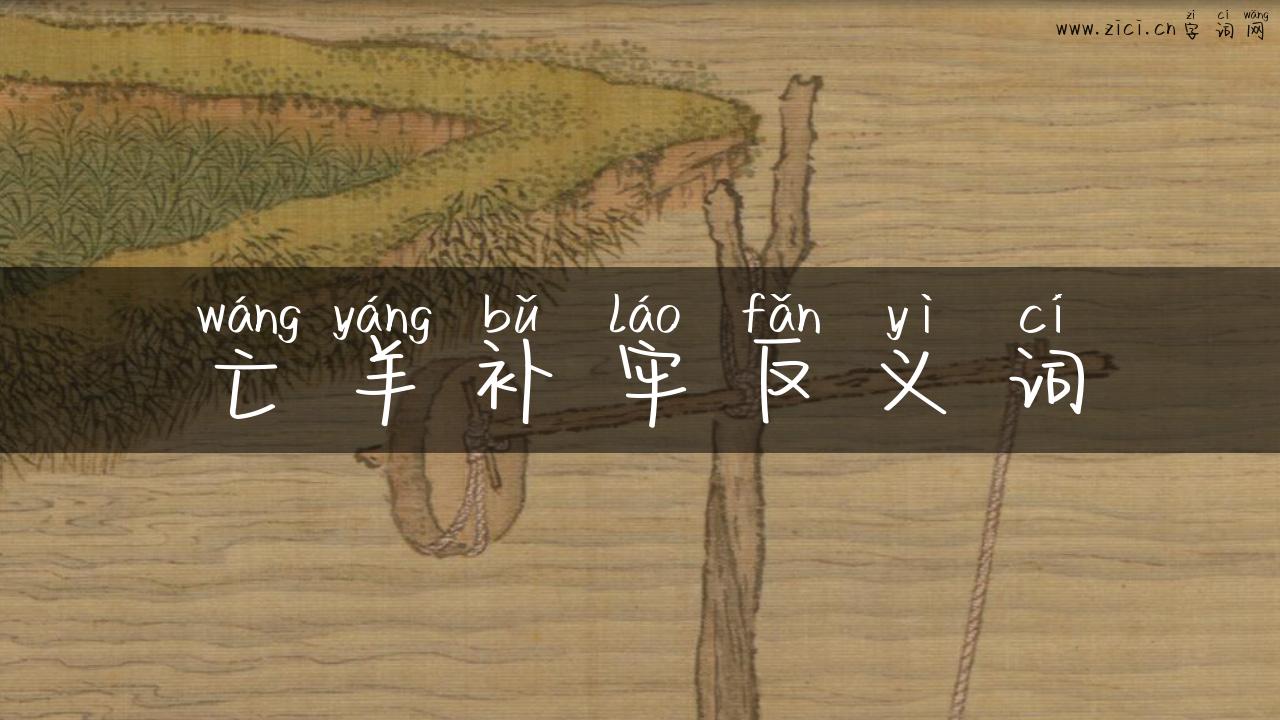 zì cí wǎng
www.zici.cn字词网
wáng yáng bǔ láo fǎn yì cí
亡羊补牢反义词